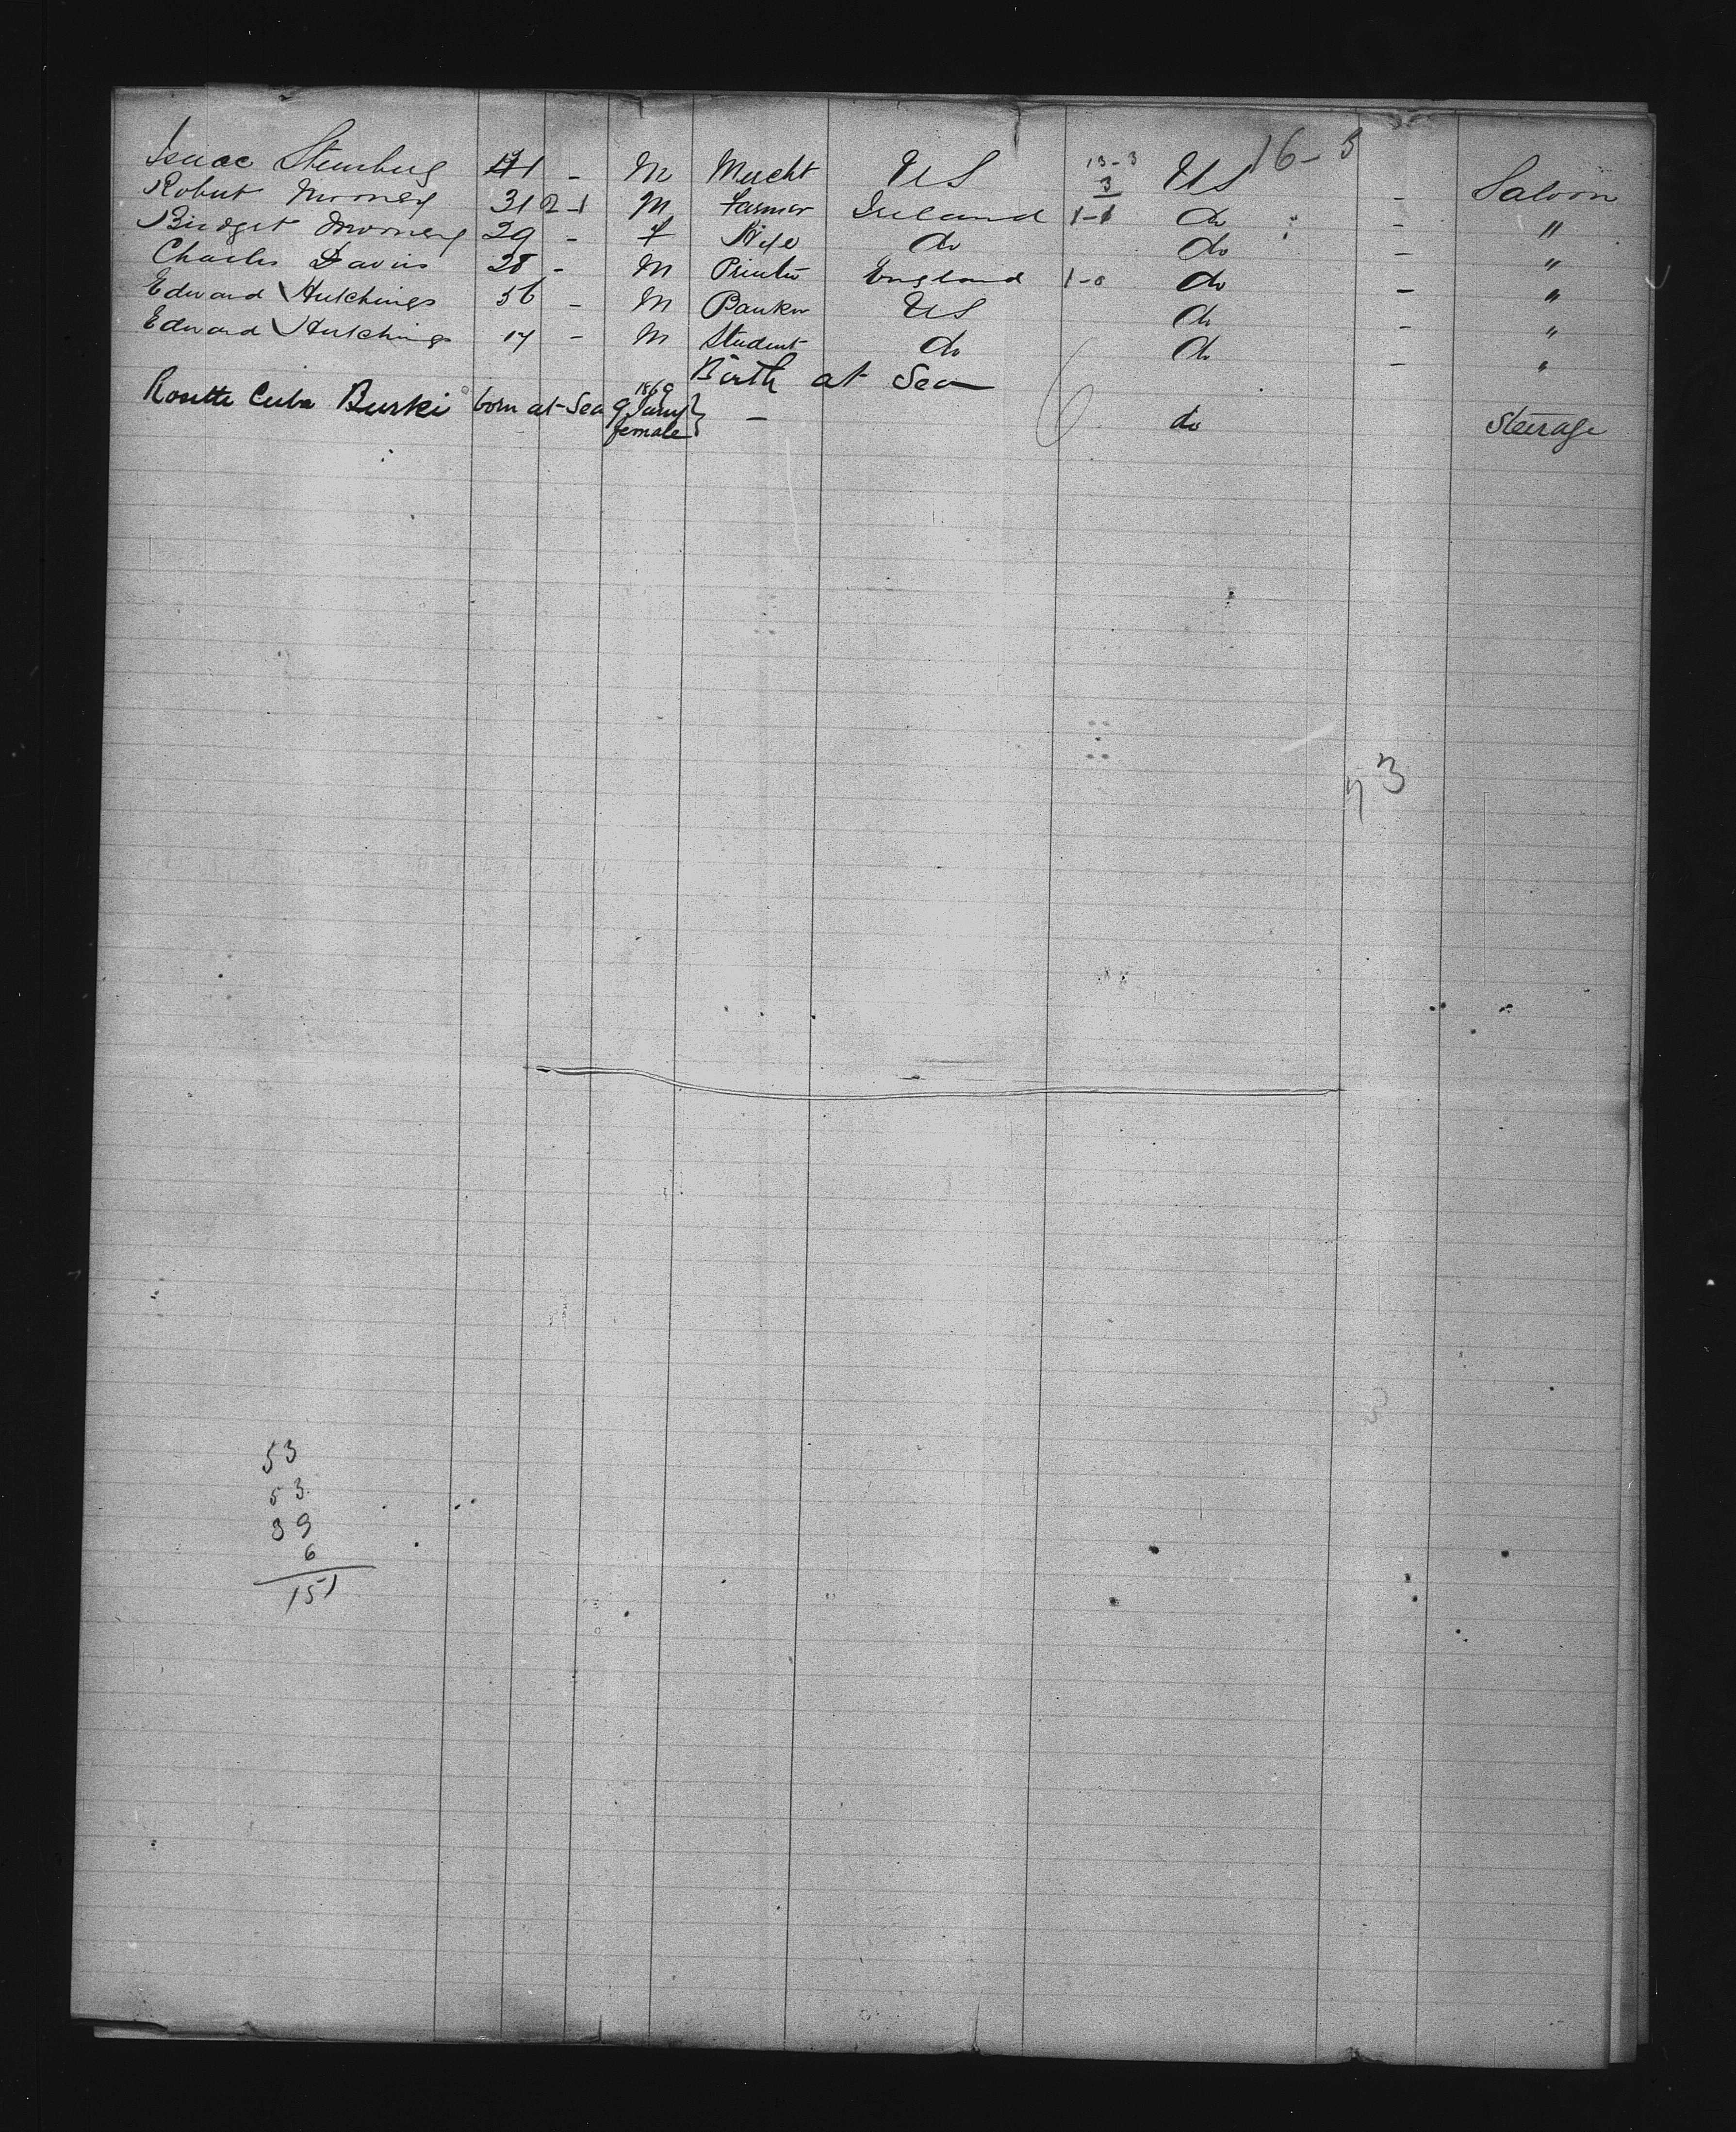 Isaac Steinberg 41 - M Mercht US 13-3 US 16-3 - Saloon
3
Robert Mooney 31 2-1 M Farmer Ireland 1-1 do - "
Bridget Mooney 29 - f Wife do do - "
Charles Davies 28 - M Printer England 1-0 do - "
Edward Hutchings 56 - M Banker US do - "
Edward Hutchings 17 - M Student do do - "
Birth at Sea
Rosetta Cuba Burki born at Sea 9 1869 } - 6 do Steerage
female
53
53
39
6
151